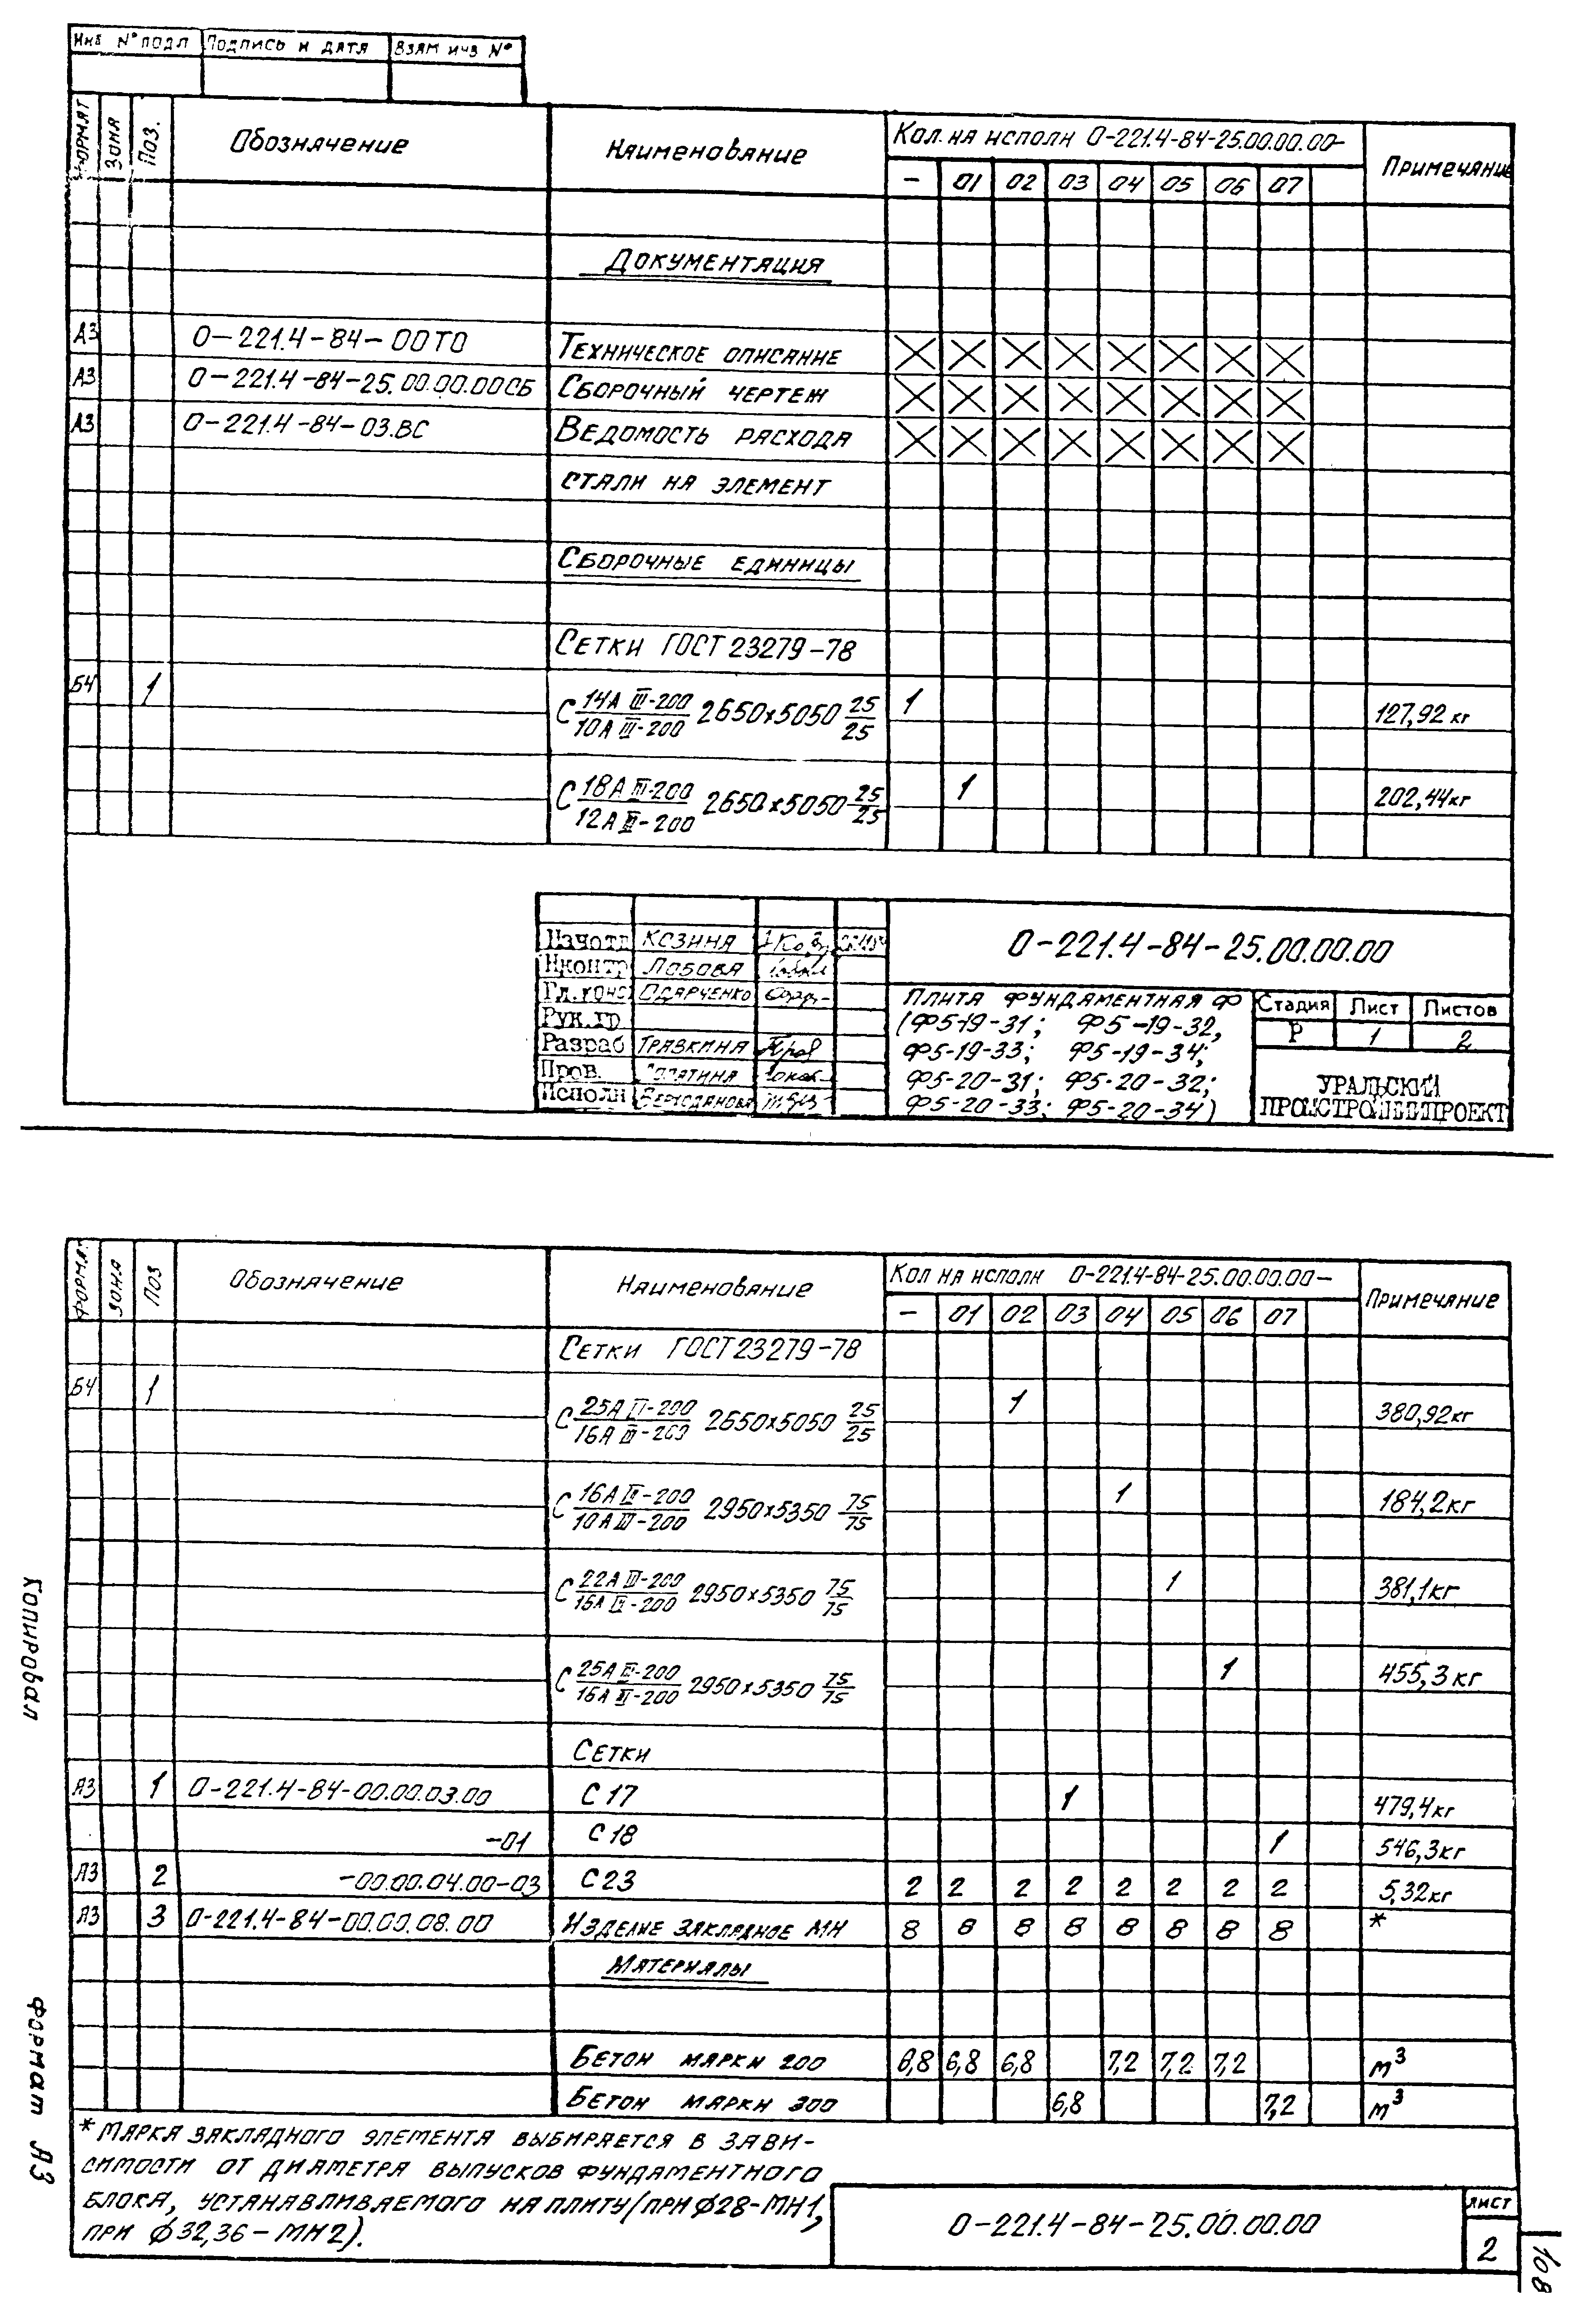 Инв № подл Подпись и дата Взам инв №
Формат Зона Поз. Обозначение Наименование Кол. на исполн 0-221.4-84-25.00.00.00- Примечание
- 01 02 03 04 05 06 07
Документация
А3 0-221.4-84-00ТО Техническое описание
А3 0-221.4-84-25.00.00.00СБ Сборочный чертеж
А3 0-221.4-84-03.ВС Ведомость расхода
стали на элемент
Сборочные единицы
Сетки ГОСТ 23279-78
БЧ 1 С 14А III-200 / 10А III-200 2650х5050 25/25 1 127,92 кг
С 18А III-200 / 12А III-200 2650х5050 25/25 1 202,44 кг
Нач отд Козина
Н контр Лобова
Гл. конс Одарченко
Рук. гр
Разраб Травкина
Пров.
Исполн
0-221.4-84-25.00.00.00
Плита фундаментная Ф
(Ф5-19-31; Ф5-19-32,
Ф5-19-33; Ф5-19-34;
Ф5-20-31; Ф5-20-32;
Ф5-20-33; Ф5-20-34)
Стадия Лист Листов
Р 1 2
УРАЛЬСКИЙ
ПРОМСТРОЙНИИПРОЕКТ
Форма Зона Поз Обозначение Наименование Кол на исполн 0-221.4-84-25.00.00.00- Примечание
- 01 02 03 04 05 06 07
Сетки ГОСТ 23279-78
БЧ 1 С 25А III-200 / 16А III-200 2650х5050 25/25 1 380,92 кг
С 16А III-200 / 10А III-200 2950х5350 75/75 1 184,2 кг
С 22А III-200 / 16А III-200 2950х5350 75/75 1 381,1 кг
С 25А III-200 / 16А III-200 2950х5350 75/75 1 455,3 кг
Сетки
А3 1 0-221.4-84-00.00.03.00 С 17 1 479,4 кг
-01 С 18 1 546,3 кг
А3 2 -00.00.04.00-03 С 23 2 2 2 2 2 2 2 2 5,32 кг
А3 3 0-221.4-84-00.00.08.00 Изделие закладное МН 8 8 8 8 8 8 8 8 *
Материалы
Бетон марки 200 6,8 6,8 6,8 7,2 7,2 7,2 м³
Бетон марки 300 6,8 7,2 м³
* Марка закладного элемента выбирается в зави-
симости от диаметра выпусков фундаментного
блока, устанавливаемого на плиту (при ф28-МН1,
при ф32,36-МН2).
0-221.4-84-25.00.00.00
Лист
2
Копировал
Формат А3
108